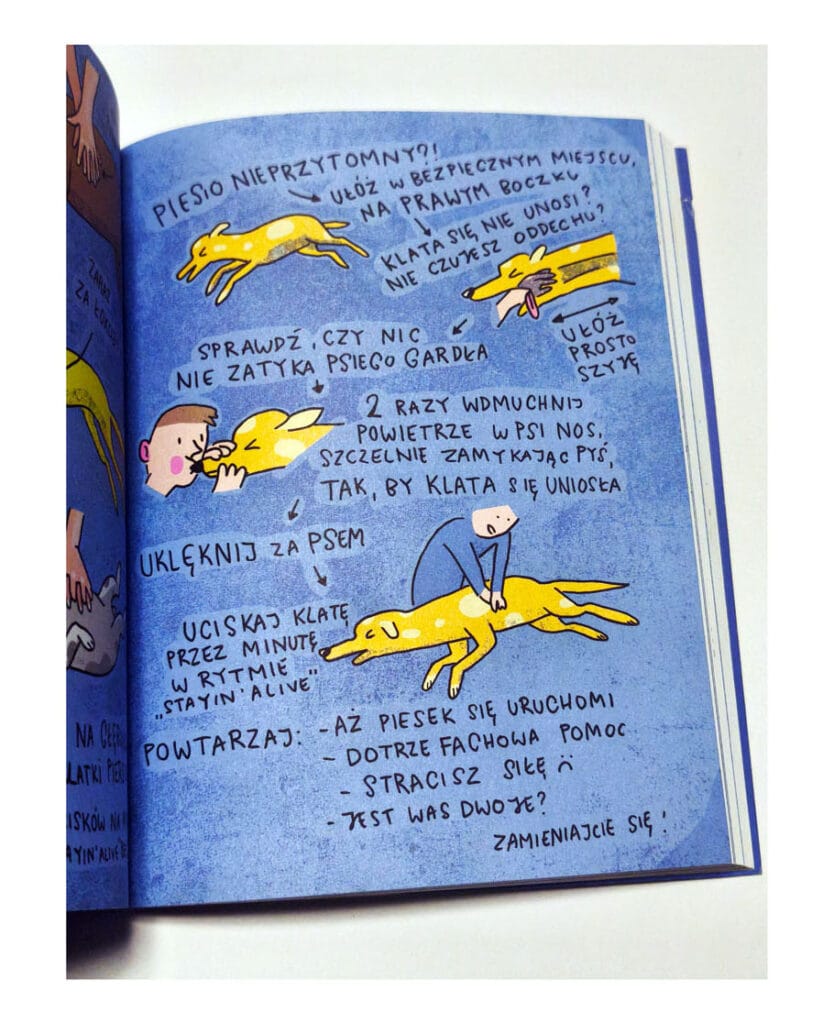 PIESIO NIEPRZYTOMNY?!
UŁÓŻ W BEZPIECZNYM MIEJSCU,
NA PRAWYM BOCZKU
KLATA SIĘ NIE UNOSI?
NIE CZUJESZ ODDECHU?
UŁÓŻ
PROSTO
SZYJĘ
SPRAWDŹ, CZY NIC
NIE ZATYKA PSIEGO GARDŁA
2 RAZY WDMUCHNIJ
POWIETRZE W PSI NOS,
SZCZELNIE ZAMYKAJĄC PYŚ,
TAK, BY KLATA SIĘ UNIOSŁA
UKLĘKNIJ ZA PSEM
UCISKAJ KLATĘ
PRZEZ MINUTĘ
W RYTMIE
„STAYIN' ALIVE"
POWTARZAJ: - AŻ PIESEK SIĘ URUCHOMI
- DOTRZE FACHOWA POMOC
- STRACISZ SIŁĘ :(
- JEST WAS DWOJE?
ZAMIENIAJCIE SIĘ!
ZA
NA